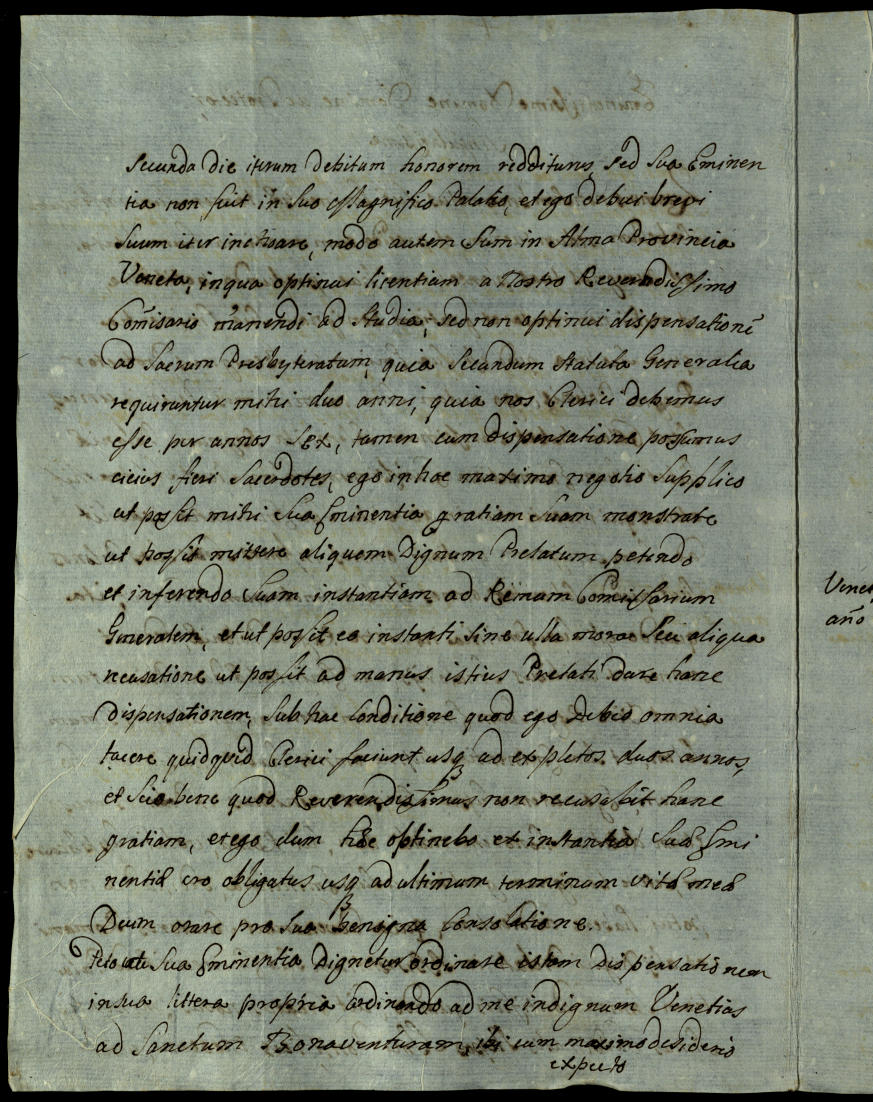 Secunda die iterum debitum honorem redditurus, sed sua Eminen
tia non fuit in suo Magnifico Palatio, et ego debui brevi
suum iter inchoare, modo autem sum in Alma Provincia
Veneta, in qua optinui licentiam a Nostro Reverendissimo
Com̃isario manendi ad studia, sed non optinui dispensationẽ
ad sacrum Presbyteratum, quia secundum statuta Generalia
requiruntur mihi duo anni, quia nos Clerici debemus
esse per annos sex, tamen cum dispensatione possumus
cicius fieri sacerdotes, ego in hoc maximo negotio supplico
ut possit mihi sua Eminentia gratiam suam monstrare
ut possit mittere aliquem Dignum Prelatum petendo
et inferendo suam instantiam ad Rẽmum Comissarium
Generalem, et ut possit ea instanti sine ulla mora seu aliqua
recusatione ut possit ad manus istius Prelati dare hanc
dispensationem, sub hac conditione quod ego debeo omnia
facere quidquid Clerici faciunt usq ad expletos duos annos,
et scio bene quod Reverendissimus non recusabit hanc
gratiam, et ego dum hæc optinebo ex instantia suæ Emi
nentiæ ero obligatus usq ad ultimum terminum vitæ meæ
Deum orare pro sua benigna consolatione.
Peto ut sua Eminentia dignetur ordinare istam dispensationem
in sua littera propria ordinando ad me indignum Venetias
ad Sanctum Bonaventuram, ibi cum maximo desiderio
expecto
Venet
año